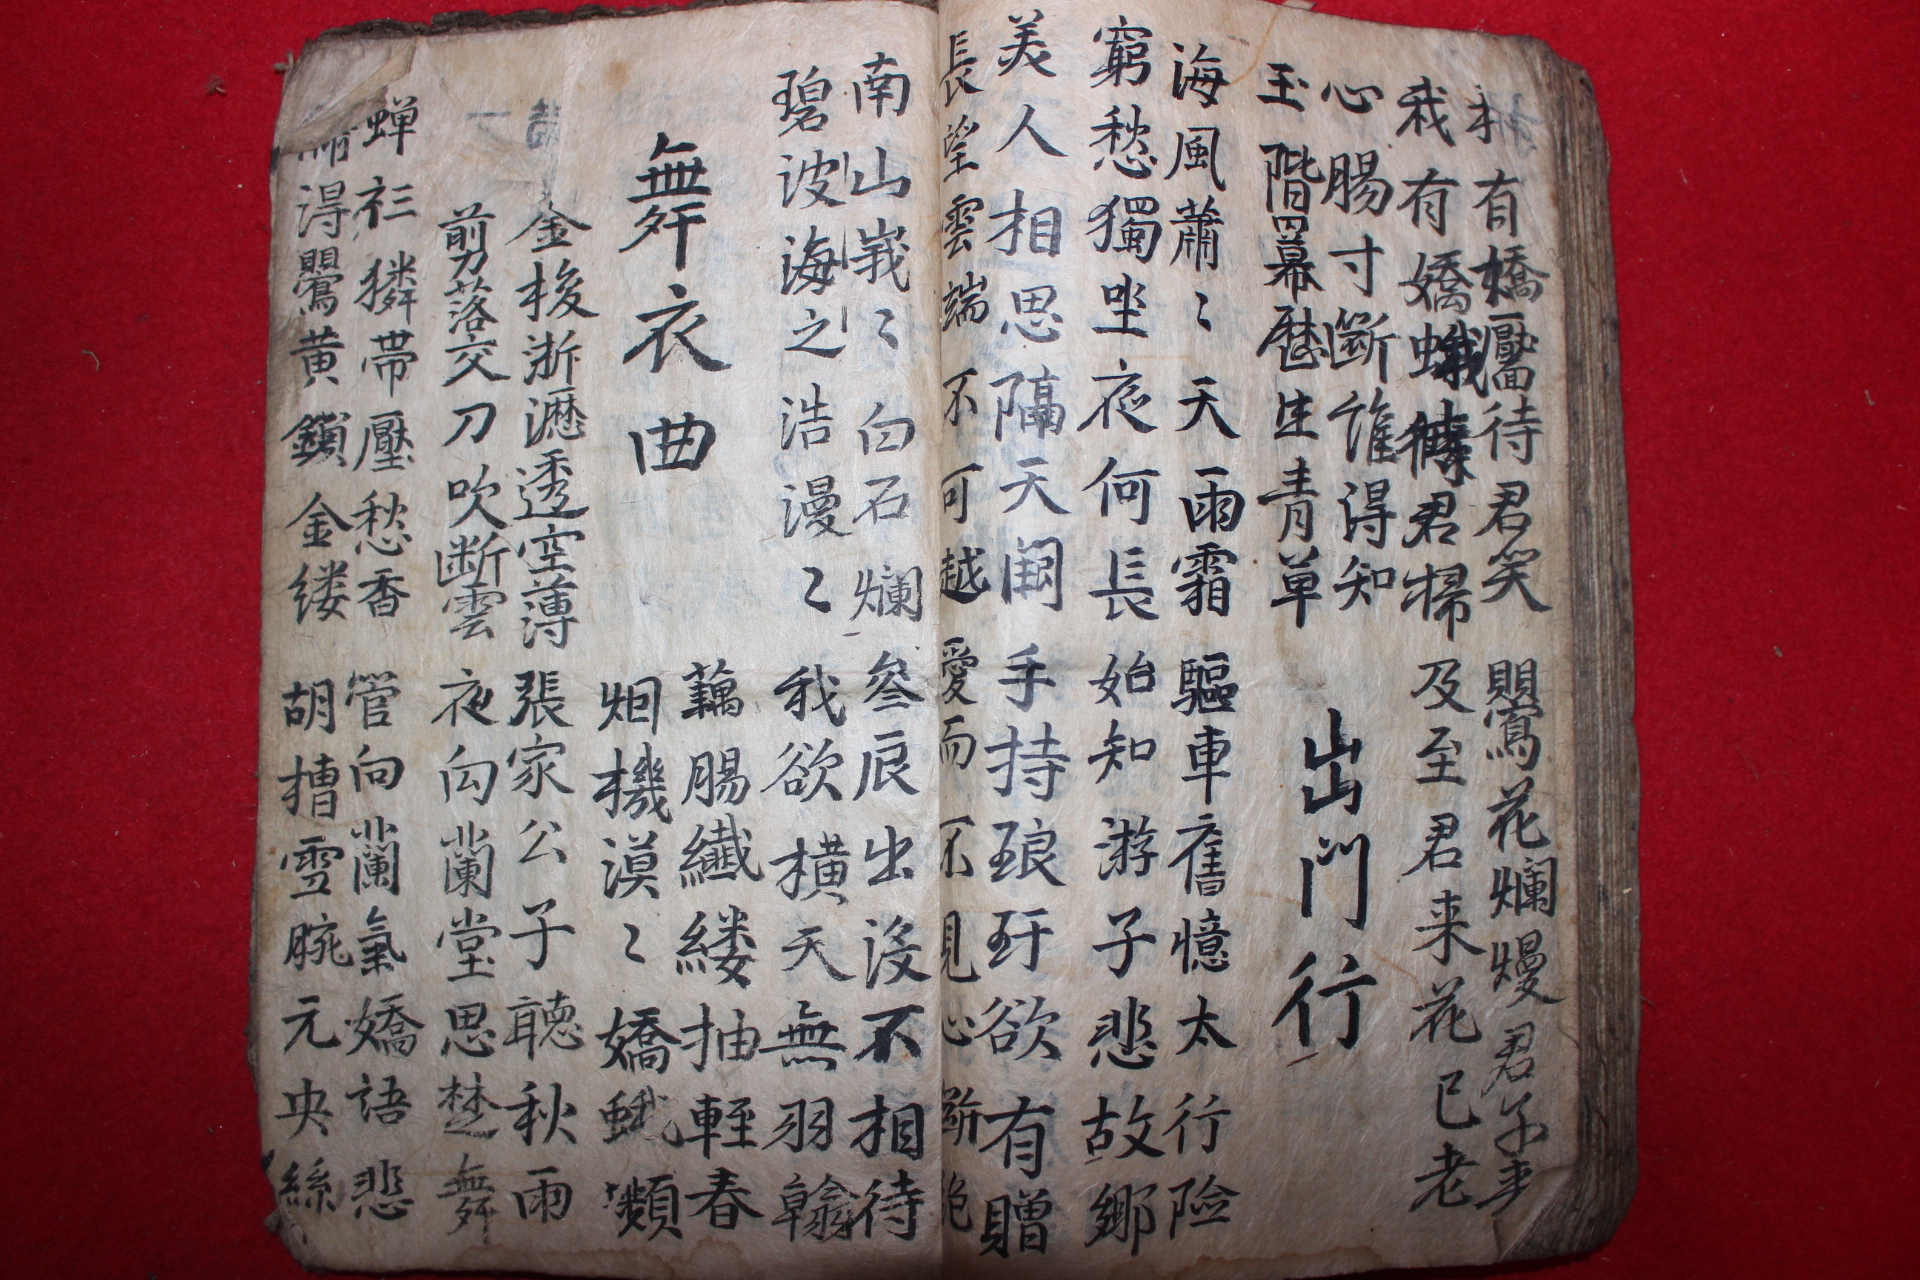 有嬌靨待君笑 鸎花爛熳君子来
我有嬌蛾待君掃 及至君来花已老
心腸寸斷誰得知
玉階羃歷生青草
出門行
海風蕭〻天雨霜 驅車舊憶太行險
窮愁獨坐夜何長 始知游子悲故鄉
美人相思隔天闕 手持琅玕欲有贈
長望雲端不可越 愛而不見心斷絶
南山峩〻白石爛 叅辰出沒不相待
碧波海之浩漫〻 我欲橫天無羽翰
舞衣曲
藕腸纖縷抽輕春
烟機漠〻嬌蛾嚬
金梭淅瀝透空薄 張家公子聽秋雨
剪落交刀吹断雲 夜向蘭堂思楚舞
蟬衫獜帶壓愁香 管向蘭氣嬌語悲
得鸎黃鎖金縷 胡槽雪腕元央絲